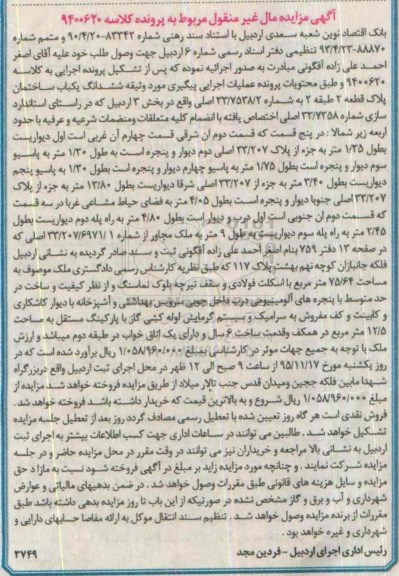 آگهی مزایده مال غیر منقول مربوط به پرونده کلاسه ۹۴۰۰۶۲۰
بانک اقتصاد نوین شعبه سعدی اردبیل با استناد سند رهنی شماره ۸۳۳۴۲-۹۰/۴/۲۰ و متمم شماره
۸۸۸۷۰-۹۳/۴/۲۳ تنظیمی دفتر اسناد رسمی شماره ۶ اردبیل جهت وصول طلب خود علیه آقای اصغر
احمد علی زاده آقگونی مبادرت به صدور اجرائیه نموده که پس از تشکیل پرونده اجرایی به کلاسه
۹۴۰۰۶۲۰ و طبق محتویات پرونده عملیات اجرایی پیگیری مورد وثیقه ششدانگ یکباب ساختمان
پلاک قطعه ۲ طبقه ۲ به شماره ۳۳/۷۵۳۸/۲ اصلی واقع در بخش ۳ اردبیل که در راستای استاندارد
سازی شماره ۳۳/۷۳۵۸ اصلی اختصاص یافته با انضمام کلیه متعلقات ومنضمات شرعیه و عرفیه با حدود
اربعه زیر شمالا : در پنج قسمت که قسمت دوم آن شرقی قسمت چهارم آن غربی است اول دیواریست
بطول ۱/۲۵ متر به جزء از پلاک ۳۳/۲۰۷ اصلی دوم دیوار و پنجره است به طول ۱/۳۰ متر به پاسیو
سوم دیوار و پنجره است بطول ۱/۷۵ متر به پاسیو چهارم دیوار و پنجره است بطول ۱/۳۰ به پاسیو پنجم
دیواریست بطول ۳/۴۰ متر به جزء از ۳۳/۲۰۷ اصلی شرقا دیواریست بطول ۱۳/۸۰ متر به جزء از پلاک
۳۳/۲۰۷ اصلی جنوبا دیوار و پنجره است بطول ۴/۰۵ متر به فضای حیاط مشاعی غربا در سه قسمت
که قسمت دوم آن جنوبی است اول درب و دیوار است بطول ۴/۸۰ متر به راه پله دوم دیواریست بطول
۲/۴۵ متر به راه پله سوم دیواریست به طول ۹ متر به ملک مجاور از شماره ۳۳/۲۰۷/۶۹۷۱/۱ اصلی که
در صفحه ۱۳ دفتر ۷۵۹ بنام اصغر احمد علی زاده آقگونی ثبت و سند صادر گردیده به نشانی اردبیل
فلکه جانبازان کوچه نهم بهشت پلاک ۱۱۷ که طبق نظریه کارشناس رسمی دادگستری ملک موصوف به
مساحت ۷۵/۶۴ متر مربع با اسکلت فولادی و سقف تیرچه بلوک نماسنگ و از نظر کیفیت و ساخت در
حد متوسط با پنجره های آلومینیومی درب داخل چوبی سرویس بهداشتی و آشپزخانه با دیوار کاشکاری
و کابینت و کف مفروش به سرامیک و سیستم گرمایش لوله کشی گاز با پارکینگ مستقل به مساحت
۱۲/۵ متر مربع در همکف وقدمت ساخت ۶ سال و دارای یک اتاق خواب در طبقه دوم میباشد و ارزش
ملک با توجه به جمیع جهات موثر در کارشناسی بمبلغ ۱/۰۵۸/۹۶۰/۰۰۰ ریال برآورد شده است که در
روز یکشنبه مورخ ۹۵/۱۱/۱۷ از ساعت ۹ صبح الی ۱۲ ظهر در محل اجرای ثبت اردبیل واقع در بزرگراه
شهدا مابین فلکه ججین ومیدان قدس جنب تالار میلاد از طریق مزایده فروخته خواهد شد مزایده از
مبلغ ۱/۰۵۸/۹۶۰/۰۰۰ ریال شروع و به بالاترین قیمت که خریدار داشته باشد فروخته خواهد شد .
فروش نقدی است هر گاه روز تعیین شده با تعطیل رسمی مصادف گردد روز بعد از تعطیل جلسه مزایده
تشکیل خواهد شد . طالبین می توانند در ساعات اداری جهت کسب اطلاعات بیشتر به اجرای ثبت
اردبیل به نشانی بالا مراجعه و خریداران نیز می توانند در وقت مقرر در محل مزایده حاضر و در جلسه
مزایده شرکت نمایند . و چنانچه مورد مزایده زاید بر مبلغ در آگهی فروخته شود نسبت به مازاد حق
مزایده و سایل هزینه های قانونی طبق مقررات وصول خواهد شد . در ضمن بدهیهای مالیاتی و عوارض
شهرداری و آب و برق و گاز مشخص نشده در صورتیکه از این باب تا روز مزایده بدهی داشته باشد طبق
مقررات از برنده مزایده وصول خواهد شد . تنظیم سند انتقال موکل به ارائه مفاصا حسابهای دارایی و
شهرداری و غیره خواهد بود .
رئیس اداری اجرای اردبیل - فردین مجد
۲۷۴۹